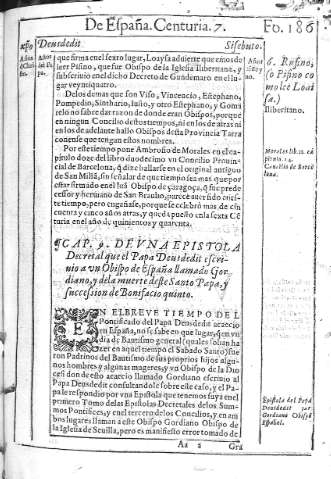 De España. Centuria. 7.
Fo. 186
Año Deusdedit
Sisebuto.
que firma en el sexto lugar, Loaysa aduierte que emos de
leer Pisino, que fue Obispo de la Iglesia Iliberitana, y
subscriuio en el dicho Decreto de Gundemaro en el lugar
veyntiquatro.
Delos demas que son Viso, Vincencio, Estephano,
Pompedio, Sintharico, Iusto, y otro Estephano, y Goma
relo no se dar razon de donde eran Obispos, porque
en ningun Concilio destos tiempos, ni en los de atras ni
en los de adelante hallo Obispos desta Prouincia Tarra
conense que tengan estos nombres.
Por este tiempo pone Ambrosio de Morales en el ca
pitulo doze del libro duodecimo vn Concilio Prouin
cial de Barcelona, q̃ dize hallarse en el original antiguo
de San Millã, sin señalar de que tiempo sea mas que por
estar firmado en el la õ Obispo de çaragoça, q̃ fue prede
cessor y hermano de San Braulio, parece auer sido en es
te tiempo, pero engañose, porque se celebró mas de cin
cuenta y cinco años atras, y queda puesto en la sexta Cẽ
turia en el año de quinientos y quarenta.
¶CAP. 9. DE VNA EPISTOLA
Decretal que el Papa Deusdedit escri-
uio a vn Obispo de España llamado Gor-
diano, y de la muerte deste Santo Papa, y
succession de Bonifacio quinto.
EN EL BREVE TIEMPO DEL
Pontificado del Papa Deusdedit acaecio
en España, no se sabe en que lugar, q̃ en vn
dia de Bautismo general (quales solian ha
zer en aquel tiempo el Sabado Santo) fue
ron Padrinos del Bautismo de sus proprios hijos algu
nos hombres y algunas mugeres, y vn Obispo de la Dio
cesi donde esto acaecio llamado Gordiano escriuio al
Papa Deusdedit consultandole sobre este caso, y el Pa
pa le respondio por vna Epistola que tenemos suya en el
primero Tomo de las Epistolas Decretales de los Sum
mos Pontifices, y en el tercero de los Concilios, y en am
bos lugares llaman a este Obispo Gordiano Obispo de
la Iglesia de Seuilla, pero es manifiesto error tomado de
Aa 2
Gra
6. Rufino,
(o Pisino co
mo lee Loai
sa.)
Iliberitano.
Morales lib. 12. ca
pitu. 12.
Concilio de Barce
lona.
Epistola del Papa
Deusdedit para
Gordiano Obispo
Español.